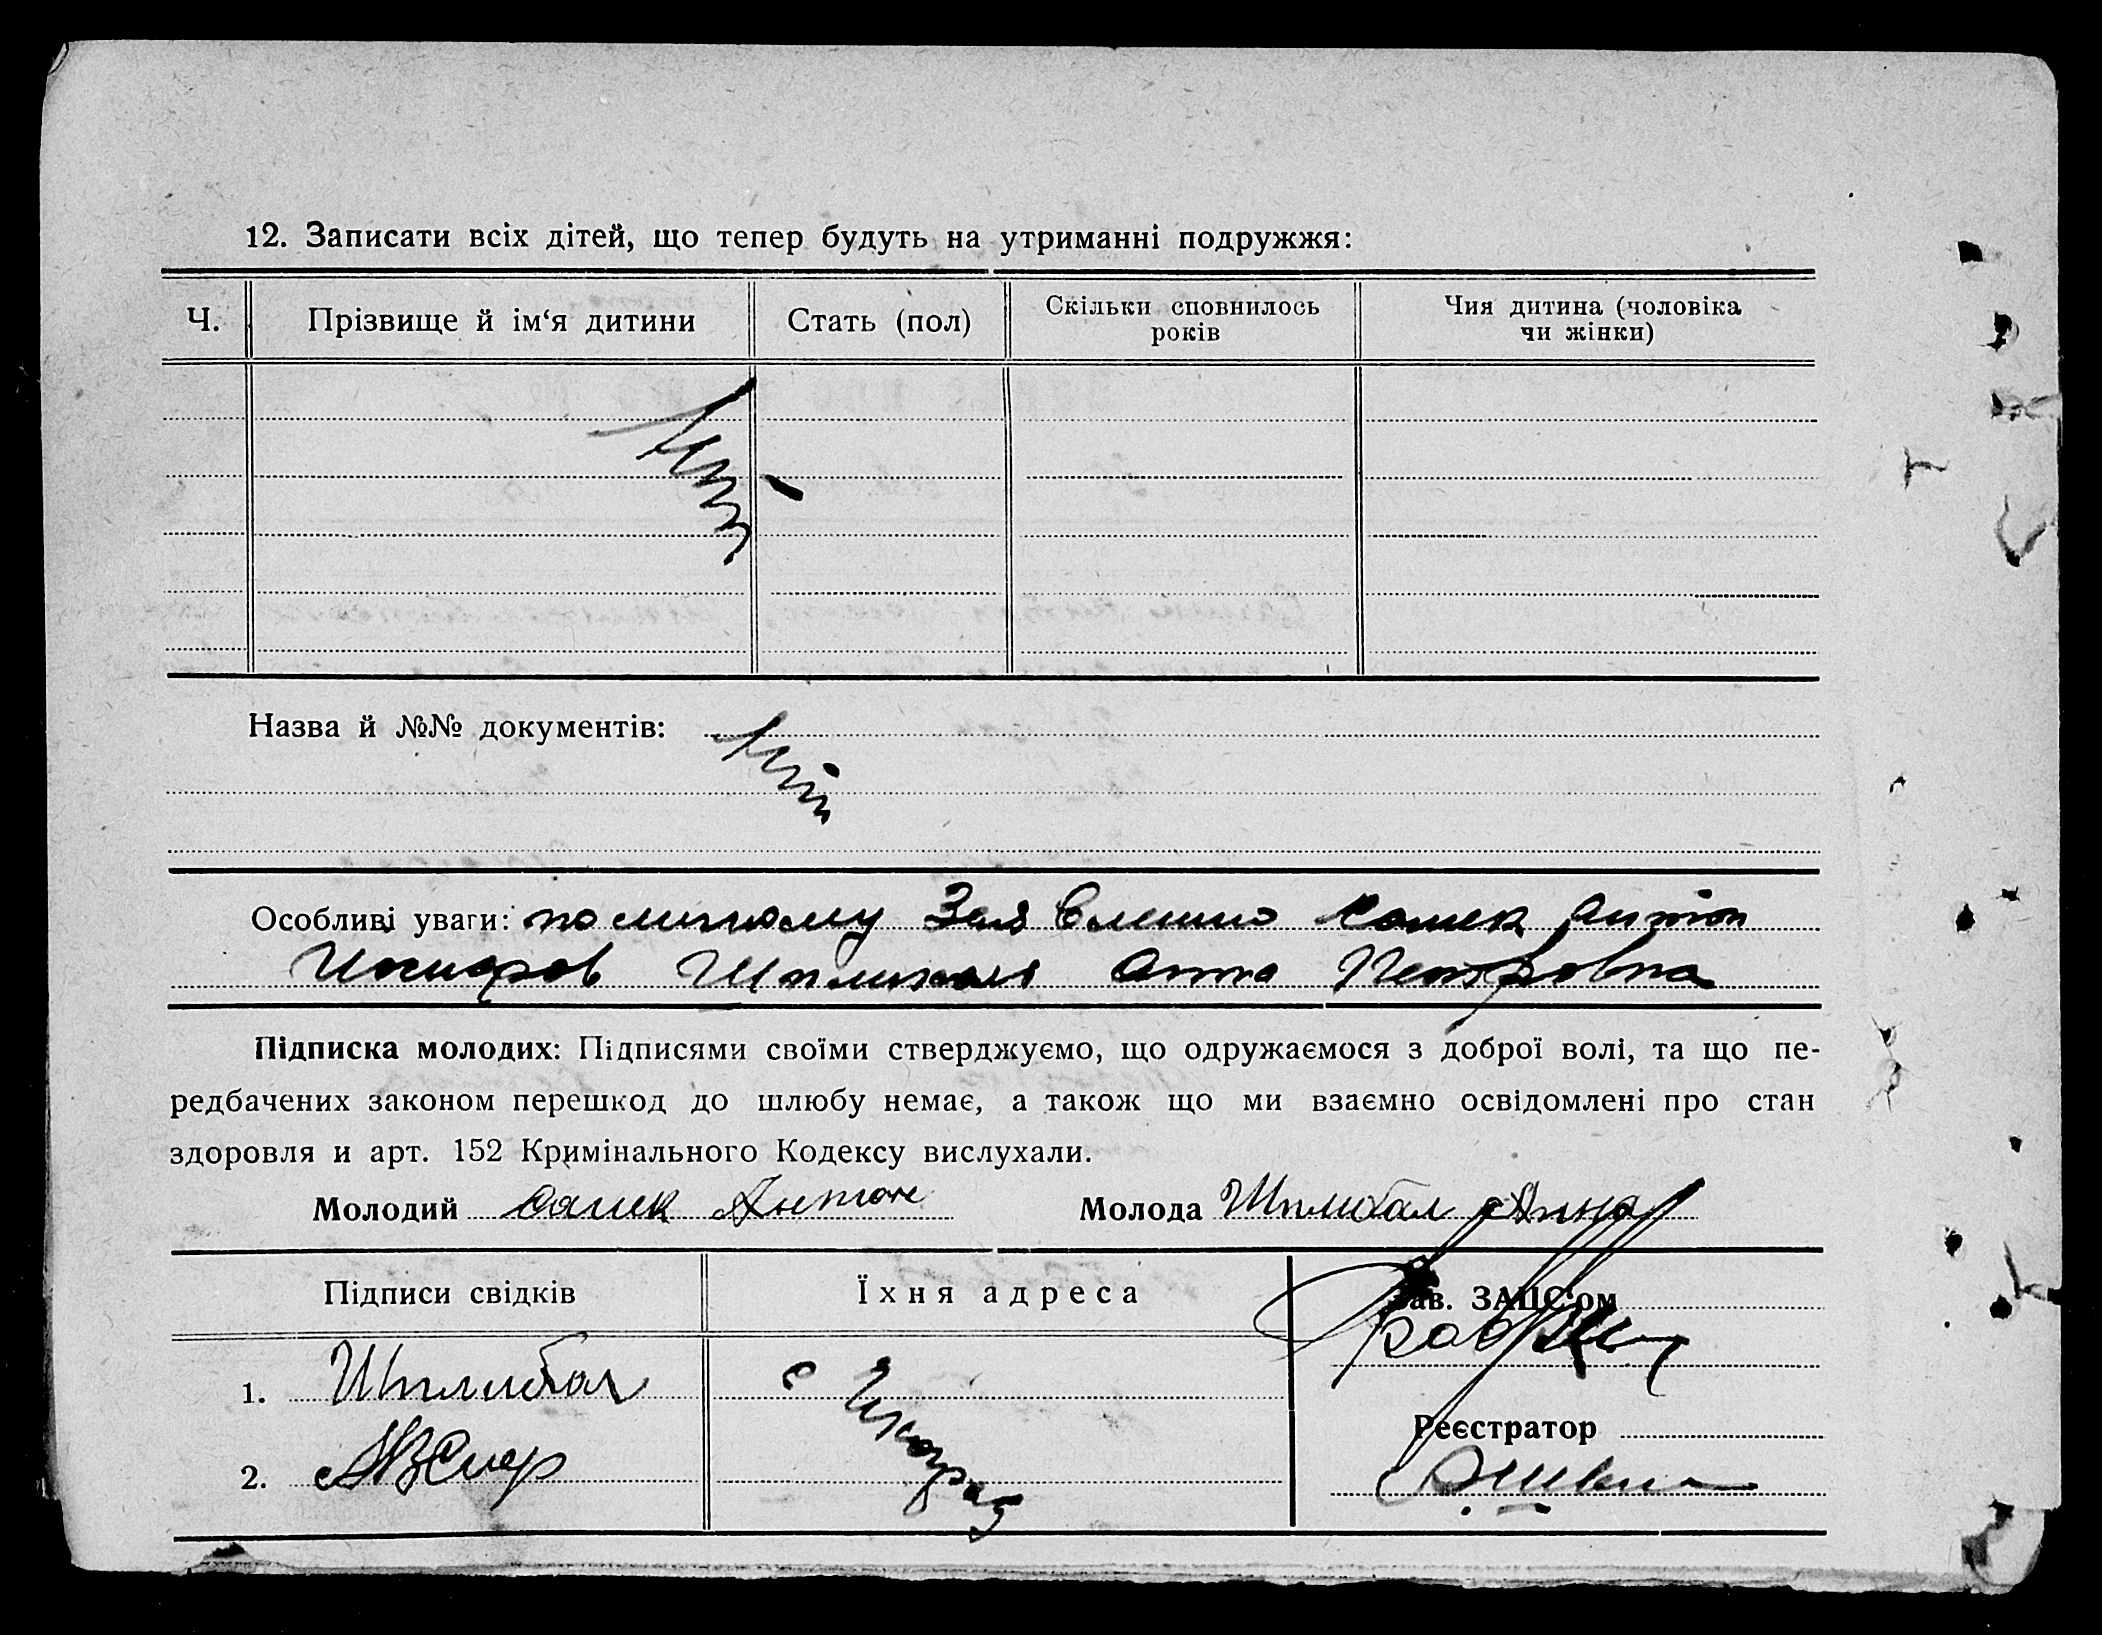 12. Записати всіх дітей, що тепер будуть на утриманні подружжя:
Ч.
Прізвище й ім‘я дитини
Стать (пол)
Скільки сповнилось
років
Чия дитина (чоловіка
чи жінки)
Назва й №№ документів:
Особливі уваги: Антон
Шплихал Анна Петровна
Підписка молодих: Підписями своїми стверджуємо, що одружаємося з доброї волі, та що пе-
редбачених законом перешкод до шлюбу немає, а також що ми взаємно освідомлені про стан
здоровля и арт. 152 Кримінального Кодексу вислухали.
Молодий Антон
Молода Шплихал Анна
Підписи свідків
Їхня адреса
Зав. ЗАЦС‘ом
1. Шплихал
с
Реєстратор
2.